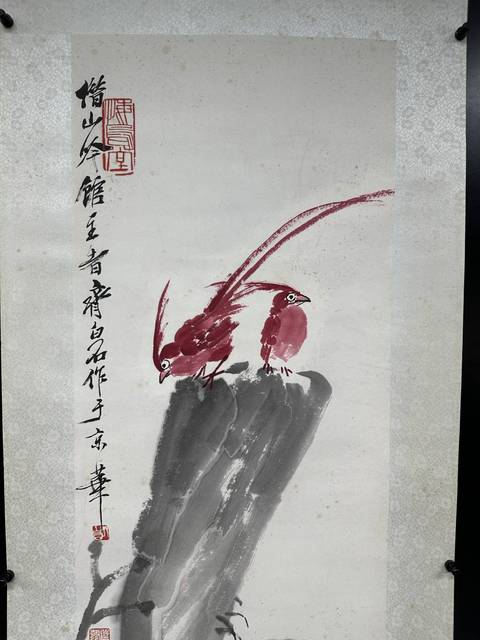 借山吟館主者齊白石作于京華
悔烏堂